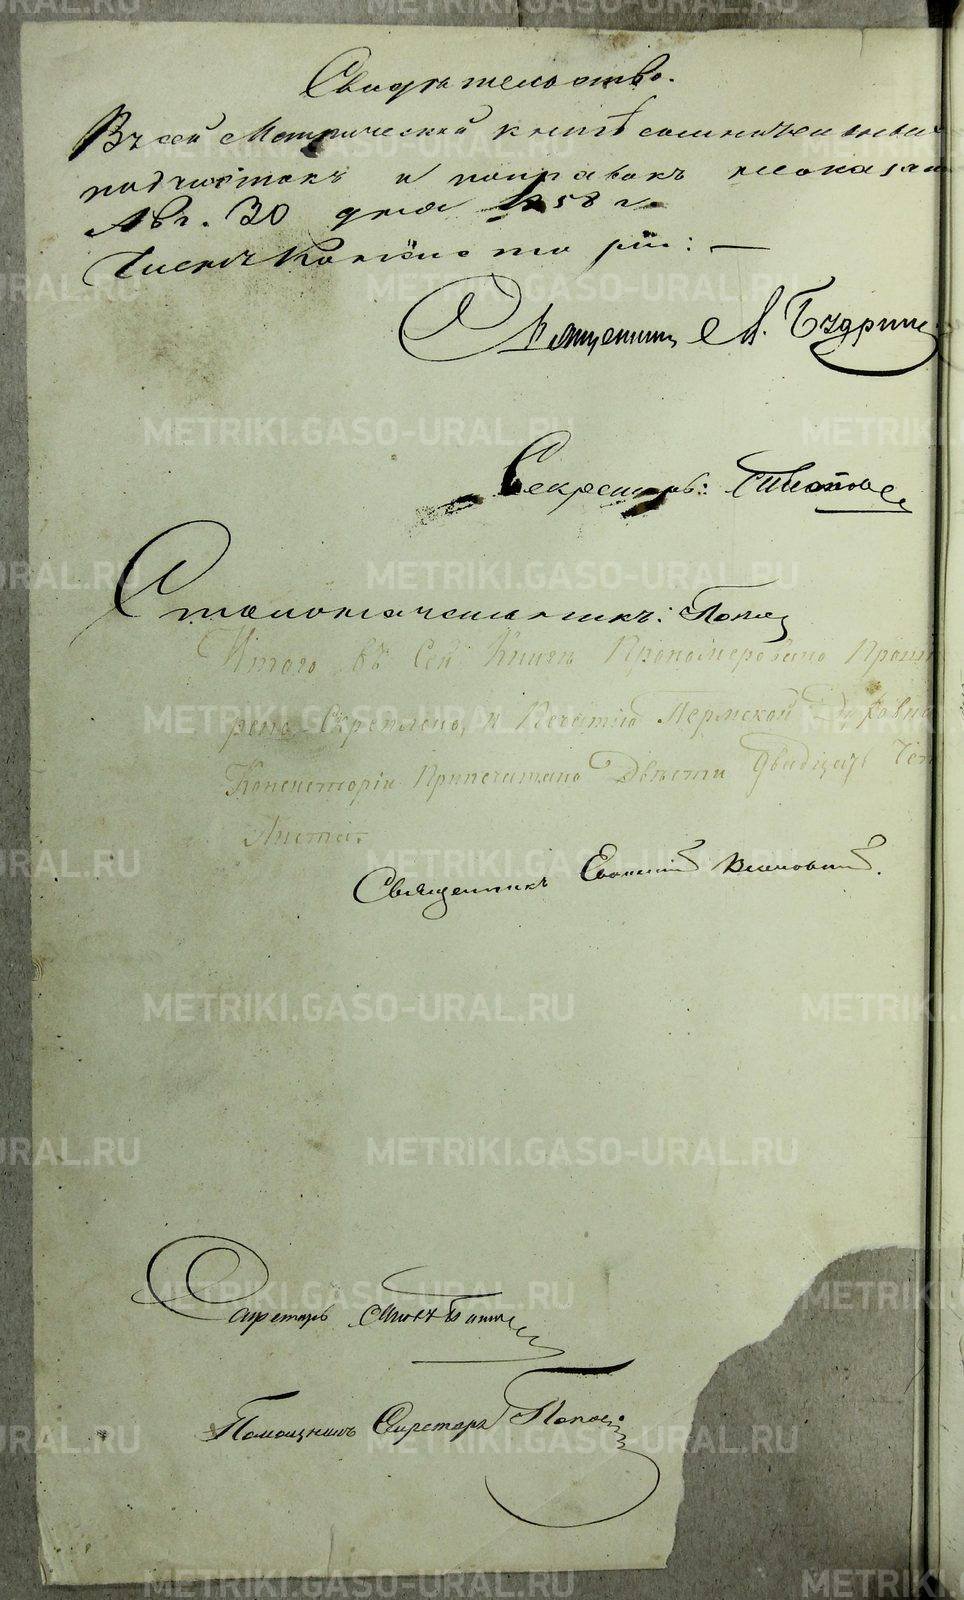 Свидѣтельство.
Въ сей Метрической книгѣ сомнительныхъ
подчистокъ и поправокъ неоказал
Авг. 30 дня 1858 г.
Священникъ А. Будрин
Секретарь:
Столоначальникъ: Попов
Итого въ Сей Книгѣ Прономеровано Прош
рено Скреплено, и Печатію Пермской Духовно
Консисторіи Припечатано Двѣсти Двадцать Чет
Листа.
Священникъ Евгеній
Секретарь
Помощникъ Секретаря Попов
METRIKI.GASO-URAL.RU